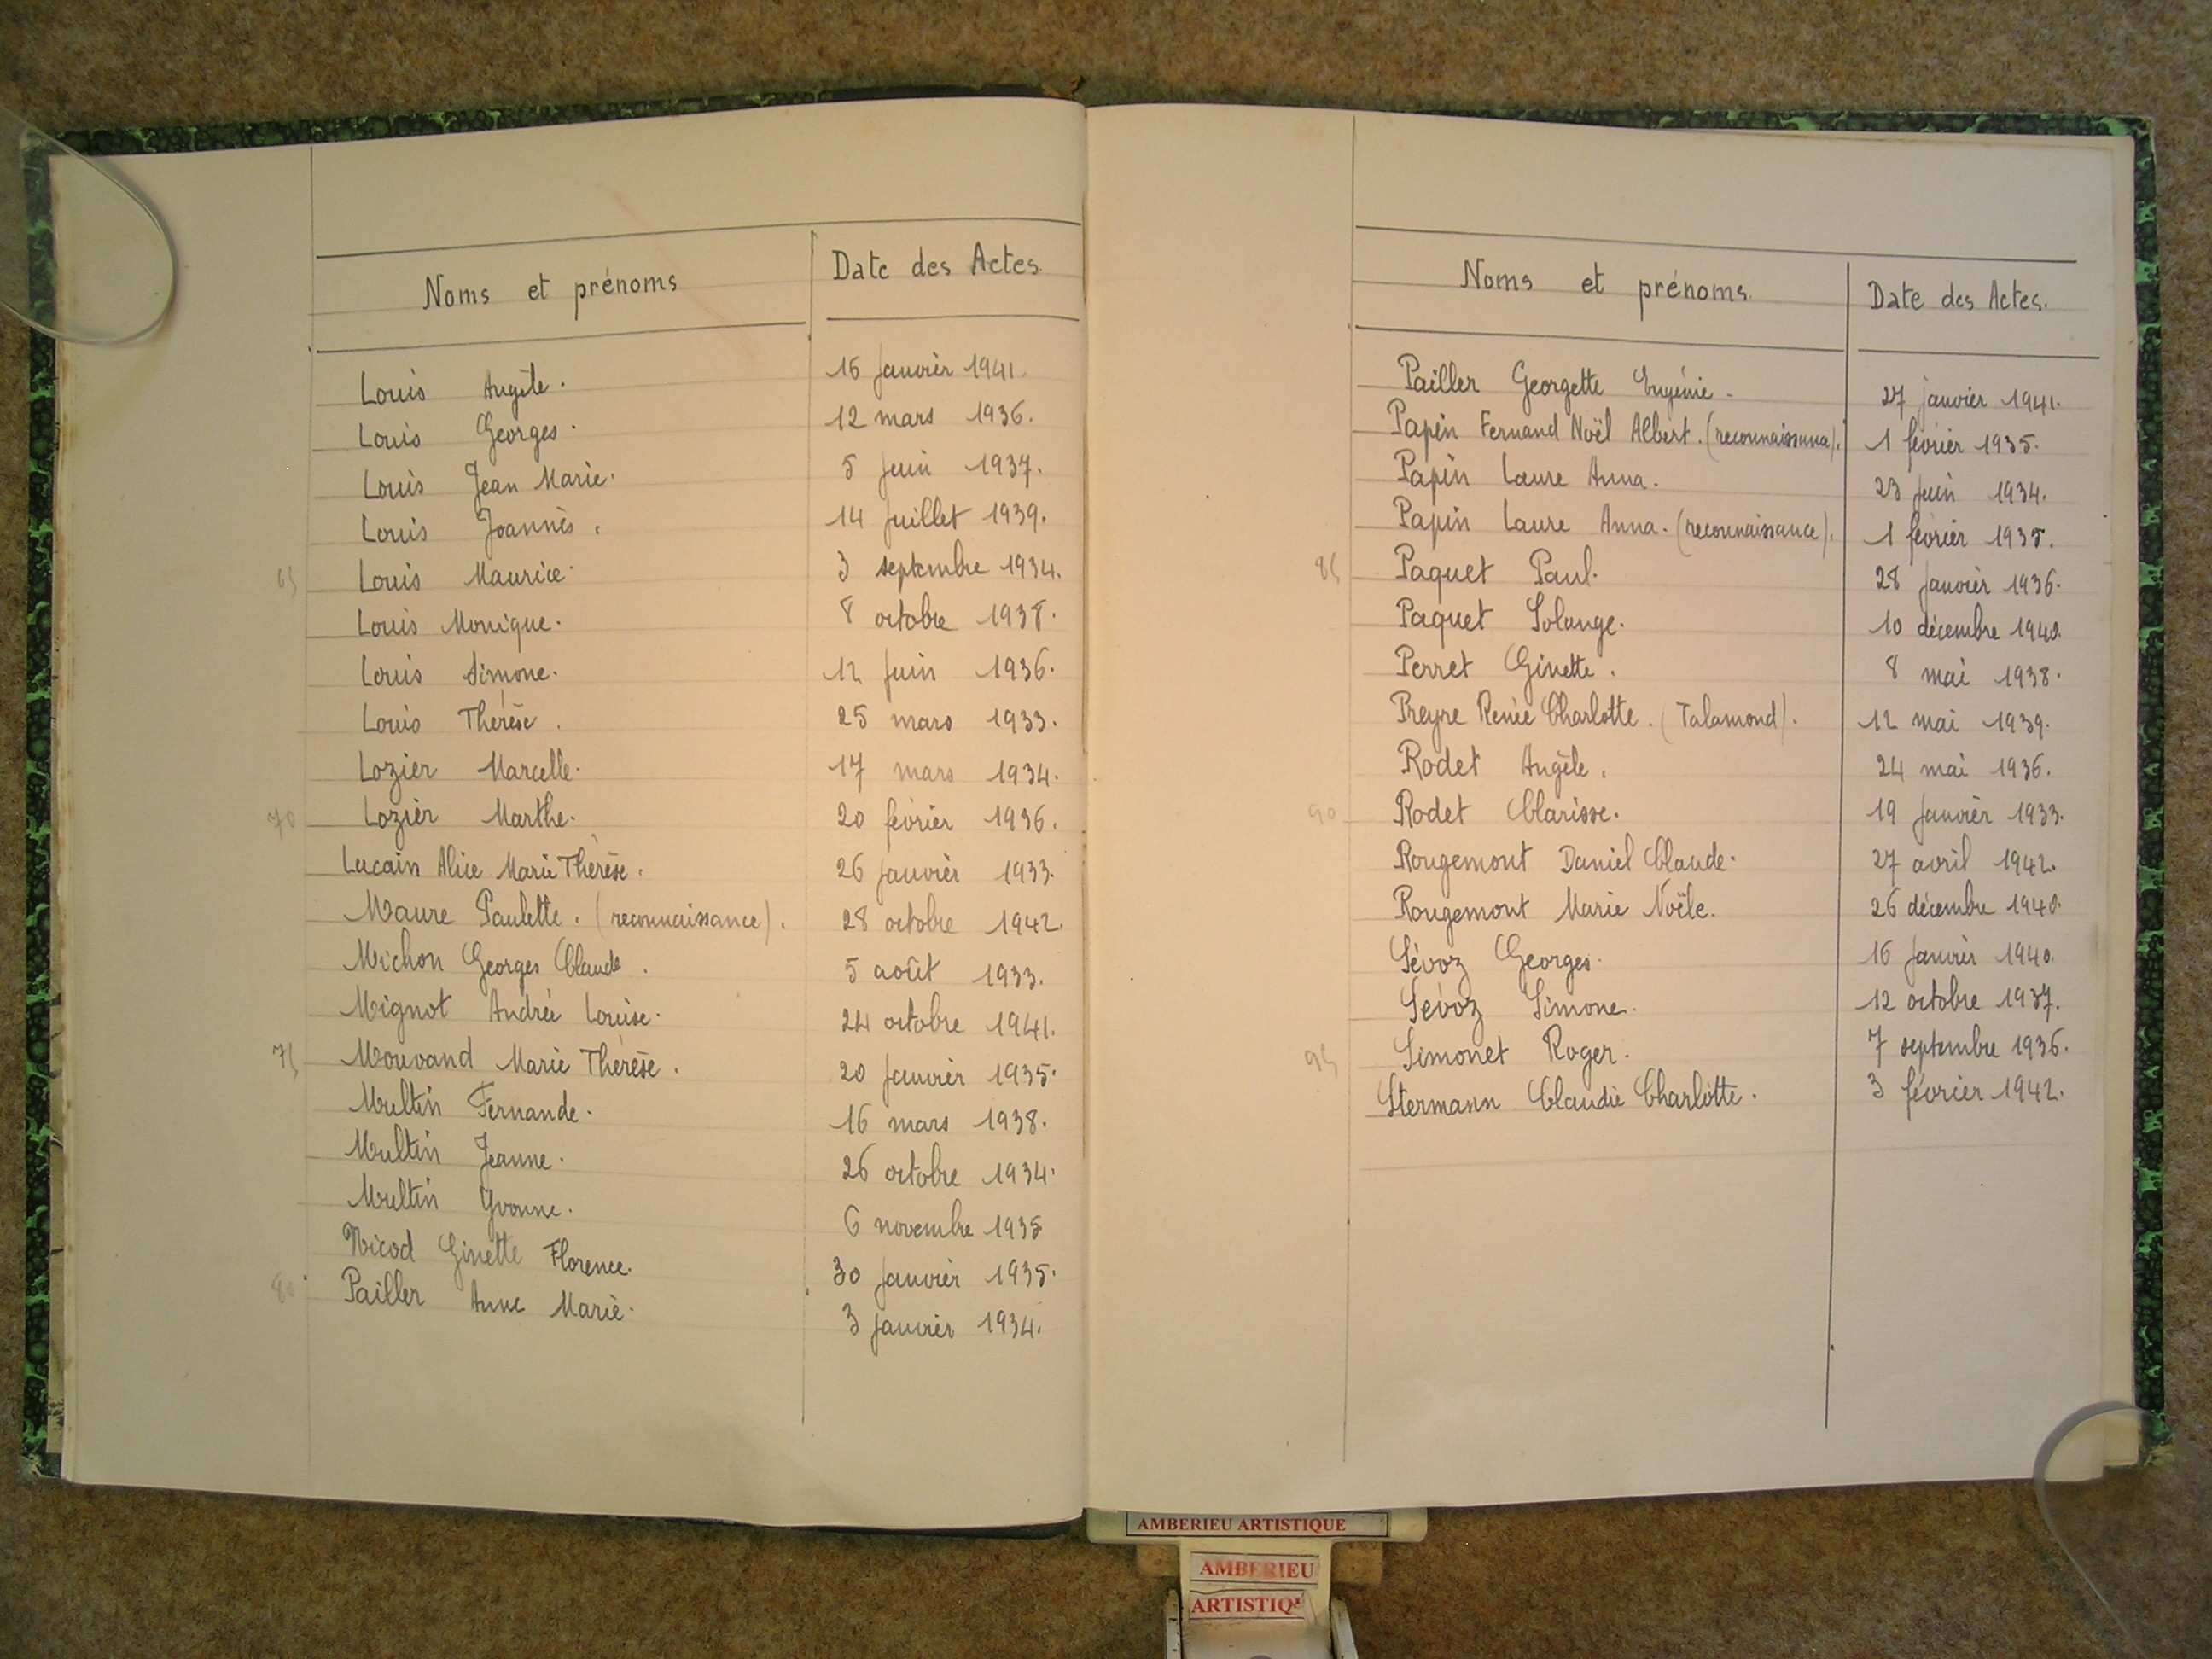 Noms et prénoms Date des Actes.
Louis Angèle. 16 janvier 1941.
Louis Georges. 12 mars 1936.
Louis Jean Marie. 5 juin 1937.
Louis Joannès. 14 juillet 1939.
65 Louis Maurice. 3 septembre 1934.
Louis Monique. 8 octobre 1938.
Louis Simone. 12 juin 1936.
Louis Thérèse. 25 mars 1933.
Lozier Marcelle. 17 mars 1934.
70 Lozier Marthe. 20 février 1936.
Lucain Alice Marie Thérèse. 26 janvier 1933.
Maure Paulette. (reconnaissance). 28 octobre 1942.
Michon Georges Claude. 5 août 1933.
Mignot Andrée Louise. 24 octobre 1941.
75 Mouvand Marie Thérèse. 20 janvier 1935.
Multin Fernande. 16 mars 1938.
Multin Jeanne. 26 octobre 1934.
Multin Yvonne. 6 novembre 1935
Nicod Ginette Florence. 30 janvier 1935.
80 Pailler Anne Marie. 3 janvier 1934.
Noms et prénoms. Date des Actes.
Pailler Georgette Eugénie. 27 janvier 1941.
Papin Fernand Noël Albert. (reconnaissance). 1 février 1935.
Papin Laure Anna. 23 juin 1934.
Papin Laure Anna. (reconnaissance). 1 février 1935.
85 Paquet Paul. 28 janvier 1936.
Paquet Solange. 10 décembre 1940.
Perret Ginette. 8 mai 1938.
Preyre Renée Charlotte. (Talamond). 12 mai 1939.
Rodet Angèle. 24 mai 1936.
90 Rodet Clarisse. 19 janvier 1933.
Rougemont Daniel Claude. 27 avril 1942.
Rougemont Marie Noële. 26 décembre 1940.
Sévoz Georges. 16 janvier 1940.
Sévoz Simone. 12 octobre 1937.
95 Simonet Roger. 7 septembre 1936.
Stermann Claudie Charlotte. 3 février 1942.
AMBERIEU ARTISTIQUE
AMBERIEU
ARTISTIQ